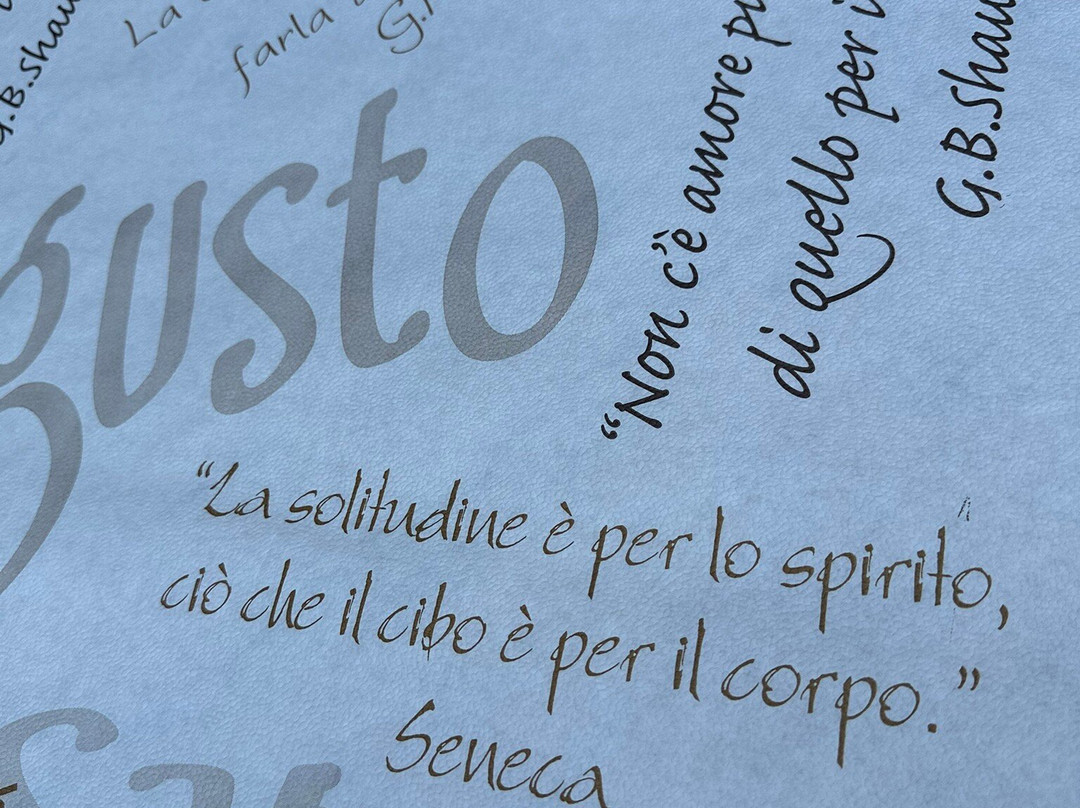 G.B.Shaw
La
farla
gusto
"Non c'è amore
di quello per
G.B.Shaw
"La solitudine è per lo spirito,
ciò che il cibo è per il corpo."
Seneca